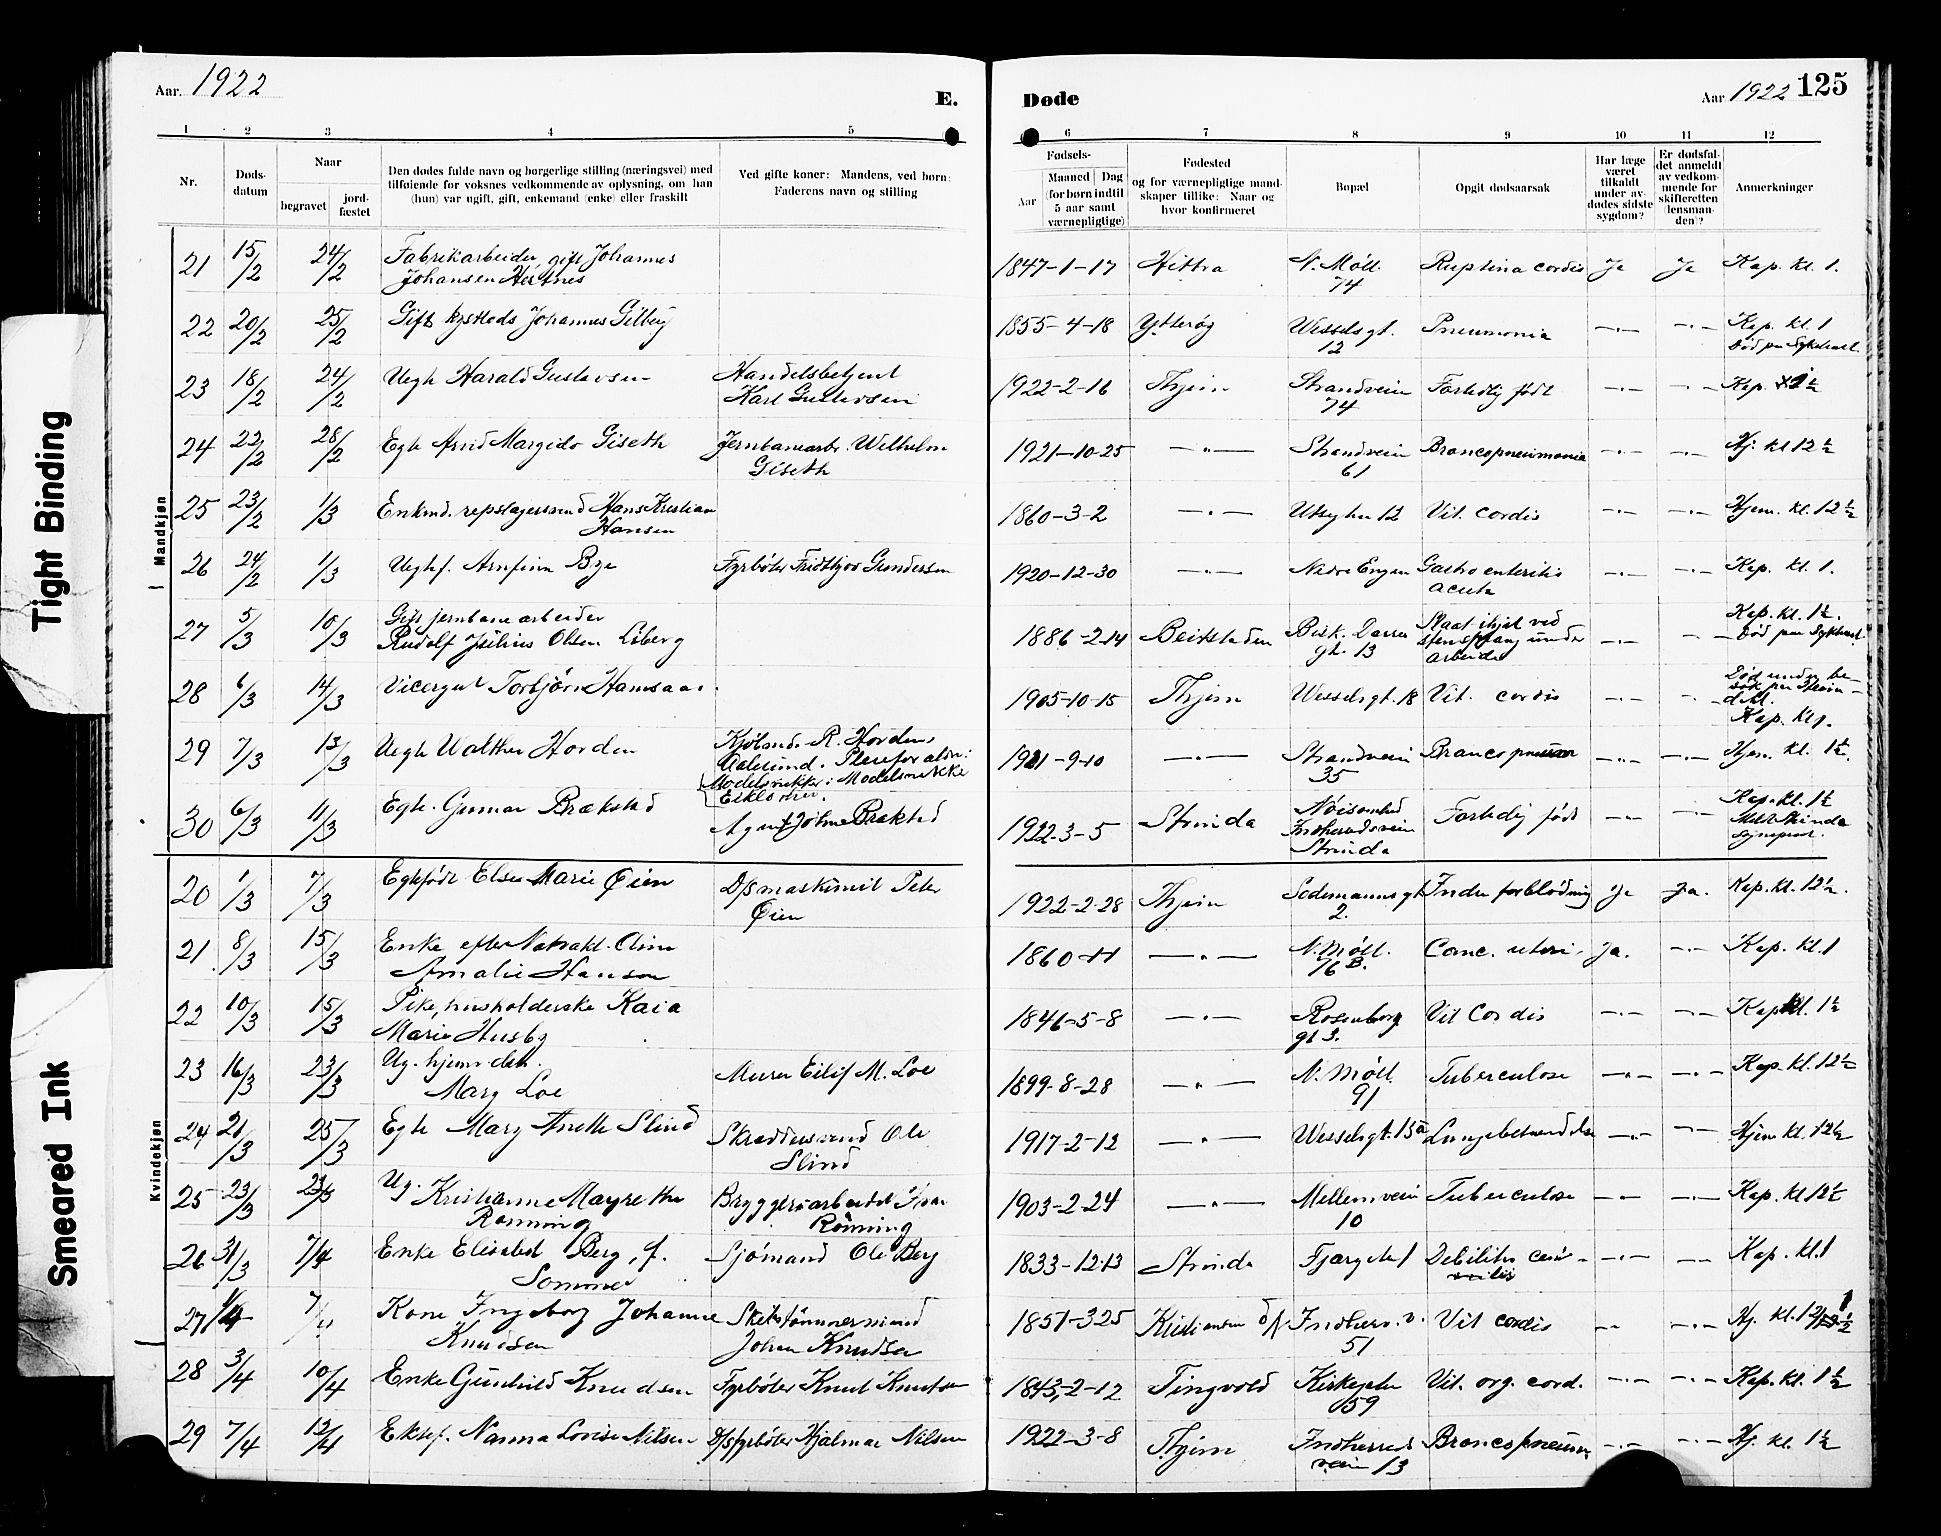 Aar. 1922
E.
Døde
Aar 1922 125
1 2 3 4 5 6 7 8 9 10 11 12
Nr.
Døds-
datum
Naar
begravet
jord-
fæstet
Den dødes fulde navn og borgerlige stilling (næringsvei) med
tilføiende for voksnes vedkommende av oplysning, om han
(hun) var ugift, gift, enkemand (enke) eller fraskilt
Ved gifte koner: Mandens, ved børn:
Faderens navn og stilling
Fødsels-
Aar
Maaned Dag
(for børn indtil
5 aar samt
værnepligtige)
Fødested
og for værnepligtige mand-
skaper tillike: Naar og
hvor konfirmeret
Bopæl
Opgit dødsaarsak
Har læge
været
tilkaldt
under av-
dødes sidste
sygdom?
Er dødsfal-
det anmeldt
av vedkom-
mende for
skifteretten
(lensman-
den)?
Anmerkninger
Mandkjøn
21 15/2 24/2 Fabrikarbeider, gift Johannes
Johansen Hestnes
1847-1-17 Hittra N. Møll. 74 Ruptina cordis Ja Ja Kap. kl. 1.
22 20/2 25/2 Gift Johannes Gilberg
1855-4-18 Ytterøy Wesselsgt. 12 Pneumonia —"— —"— Kap. kl. 1
Død paa Sykehuset
23 18/2 24/2 Uegte Harald Gustavsen Handelsbetjent
Karl Gustavsen
1922-2-16 Thjem Strandveien 74 Fortidlig født —"— —"— Kap. 1½
24 22/2 28/2 Egte Arnd Margido Giseth Jernbanearb. Wilhelm
Giseth
1921-10-25 —"— Strandveien 61 Broncopneumonia —"— —"— Hj. kl 12½
25 23/2 1/3 Enkmd. repslagersvend Hans Kristian
Hansen
1860-3-2 —"— 12 Vit. cordis —"— —"— Hjem. kl. 12½
26 24/2 1/3 Uegtef. Arnfinn Bye Fyrbøter Fridtjov Gundersen
1920-12-30 —"— Nedre Engen Gastro enteritis
acuta —"— —"— Kap. kl. 1.
27 5/3 10/3 Gift jernbanearbeider
Rudolf Julius Olsen Liberg
1886-2-14 Beitstaden Bisk. Darres
gt. 13 Slaat ihjel ved
stensprang under
arbeide —"— —"— Kap. kl. 1½.
Død paa Sykehuset
28 6/3 14/3 Vicergut Torbjørn Hamsaas
1905-10-15 Thjem Wesselsgt. 18 Vit. cordis —"— —"— Død under be-
søk paa
Kap. kl 1.
29 7/3 13/3 Uegte Walther Horden Kjøbmd. R. Horden,
Aalesund. Pleieforældre:
Modelsnekker: Modelsnekker
1921-9-10 —"— Strandveien 35 —"— —"— Hjem. kl. 1½.
30 6/3 11/3 Egte. Gunnar Brækstad Agent Johne Brækstad
1922-3-5 Strinda
Indherredsveien
Strinda Fortidlig født —"— —"— Kap. kl. 1½
Kvindekjøn
20 1/3 7/3 Egtefødt Else Marie Øien D/s maskinist Peter
Øien
1922-2-28 Thjem Sødemannsgt
2. Indre forblødning Ja Ja. Kap. kl. 12½.
21 8/3 15/3 Enke efter Aline
Amalie Hansen
1860-11 —"— N. Møll.
76 B. Canc. uteri. Ja. —"— Kap. kl. 1
22 10/3 15/3 Pike, husholderske Kaia
Marie Husby
1846-5-8 —"— Rosenborg
gt 3. Vit Cordis —"— —"— Kap. kl. 1½
23 16/3 23/3 Ug. hjemv. dtr.
Mary Loe Murer Eilif M. Loe
1899-8-28 —"— N. Møll.
91 Tuberculose —"— —"— Kap. kl. 12½
24 21/3 25/3 Egte Mary Anette Slind Skræddersvend Ole
Slind
1917-2-12 —"— Wesselsgt. 15a Lungebetændelse —"— —"— Hjem kl. 12½
25 23/3 23/3 Ug. Kristianne Margrethe
Rønning Bryggeriarbeider Iver
Rønning
1903-2-24 —"— Mellemveien
10 Tuberculose —"— —"— Kap. kl 12½
26 31/3 7/4 Enke Elisabet Berg, f.
Sommer Sjømand Ole Berg
1833-12-13 Strinda Fjærgaten 1 Debilitas —"— —"— Kap. kl. 1
27 1/4 7/4 Kone Ingeborg Johanne
Knudsen Skibstømmermand
Johan Knudsen
1851-3-25 Kristiansund Indherr. v.
51 Vit cordis —"— —"— Hj. kl. 12½
28 3/4 10/4 Enke Gunhild Knudsen Fyrbøter Knut Knutsen
1843-2-12 Tingvold Kirkegaten
59 Vit. org. cord. —"— —"— Kap. kl. 1½
29 7/4 13/4 Ektef. Nanna Lovise Nilsen D/s fyrbøter Hjalmar Nilsen
1922-3-8 Thjem Indherreds
veien 13 Broncopneum. —"— —"— Hj. kl. 1½
Tight Binding
Smeared Ink